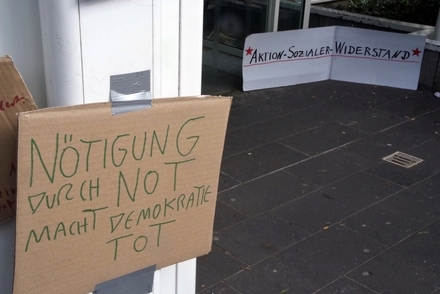 NÖTIGUNG
DURCH NOT
MACHT DEMOKRATIE
TOT
AKTION-SOZIALER-WIDERSTAND